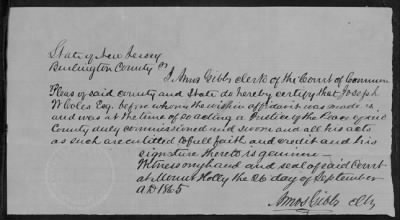 State of New Jersey
Burlington County ss
I Amos Gibbs clerk of the Court of Common
Pleas of said county and State do hereby certify that Joseph
W Coles Esq. before whom the within affidavit was made is
and was at the time of so doing a Justice of the Peace of said
County duly commissioned and sworn and all his acts
as such are entitled to full faith and credit and his
signature thereto is genuine –
Witness my hand and seal of said Court
at Mount Holly the 26 day of September
AD 1865
Amos Gibbs Clk